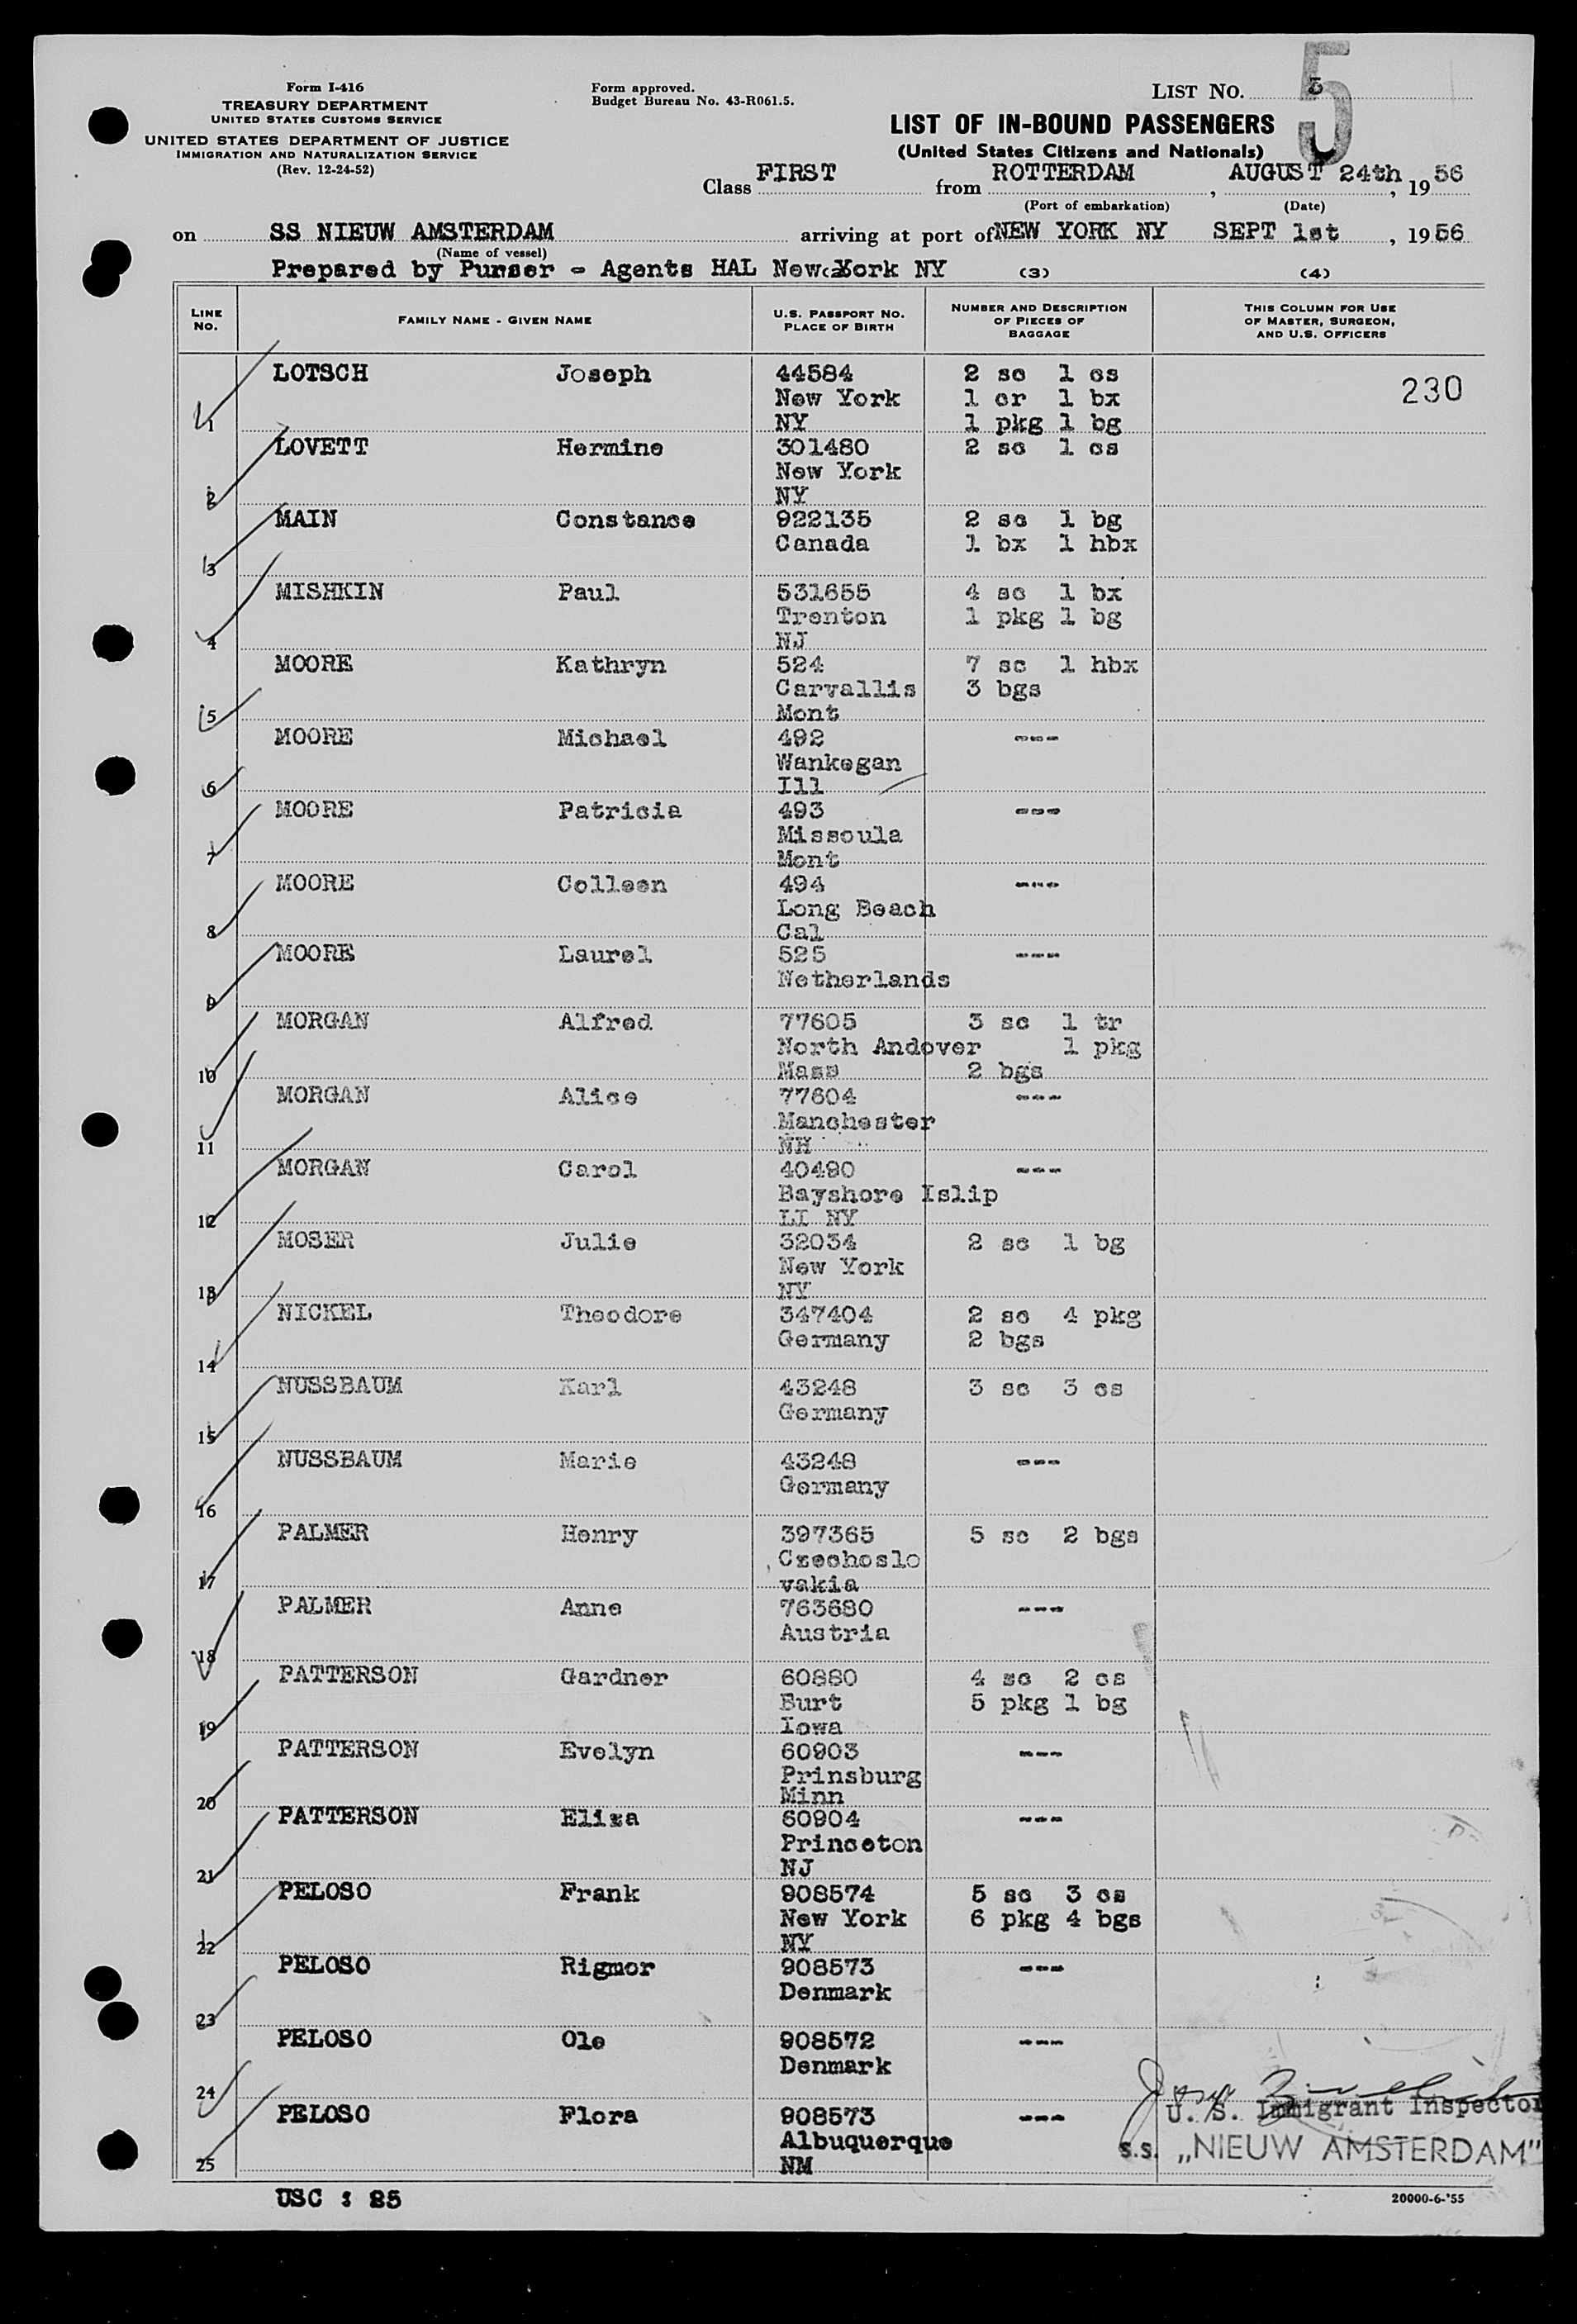 Form I-416
TREASURY DEPARTMENT
UNITED STATES CUSTOMS SERVICE
UNITED STATES DEPARTMENT OF JUSTICE
IMMIGRATION AND NATURALIZATION SERVICE
(Rev. 12-24-52)
Form approved.
Budget Bureau No. 43-R061.5.
LIST NO. 5
5
LIST OF IN-BOUND PASSENGERS
(United States Citizens and Nationals)
Class FIRST from ROTTERDAM , AUGUST 24th , 19 56
(Port of embarkation) (Date)
on SS NIEUW AMSTERDAM arriving at port of NEW YORK NY SEPT 1st , 19 56
(Name of vessel)
Prepared by Purser - Agents HAL New York NY (2) (3) (4)
LINE NO. FAMILY NAME - GIVEN NAME U.S. PASSPORT NO. PLACE OF BIRTH NUMBER AND DESCRIPTION OF PIECES OF BAGGAGE THIS COLUMN FOR USE OF MASTER, SURGEON, AND U.S. OFFICERS
LOTSCH Joseph 44584 2 sc 1 cs 230
New York 1 cr 1 bx
1 NY 1 pkg 1 bg
LOVETT Hermine 301480 2 sc 1 cs
New York
2 NY
MAIN Constance 922135 2 sc 1 bg
Canada 1 bx 1 hbx
3
MISHKIN Paul 531655 4 sc 1 bx
Trenton 1 pkg 1 bg
4 NJ
MOORE Kathryn 524 7 sc 1 hbx
Carvallis 3 bgs
5 Mont
MOORE Michael 492 ---
Wankegan
6 Ill
MOORE Patricia 493 ---
Missoula
7 Mont
MOORE Colleen 494 ---
Long Beach
8 Cal
MOORE Laurel 525 ---
Netherlands
9
MORGAN Alfred 77605 3 sc 1 tr
North Andover 1 pkg
10 Mass 2 bgs
MORGAN Alice 77604 ---
Manchester
11 NH
MORGAN Carol 40490 ---
Bayshore Islip
12 LI NY
MOSER Julie 32034 2 sc 1 bg
New York
13 NY
NICKEL Theodore 347404 2 sc 4 pkg
Germany 2 bgs
14
NUSSBAUM Karl 43248 3 sc 3 cs
Germany
15
NUSSBAUM Marie 43248 ---
Germany
16
PALMER Henry 397365 5 sc 2 bgs
Czechoslo
17 vakia
PALMER Anne 763680 ---
Austria
18
PATTERSON Gardner 60880 4 sc 2 cs
Burt 5 pkg 1 bg
19 Iowa
PATTERSON Evelyn 60903 ---
Prinsburg
20 Minn
PATTERSON Eliza 60904 ---
Princeton
21 NJ
PELOSO Frank 908574 5 sc 3 cs
New York 6 pkg 4 bgs
22 NY
PELOSO Rigmor 908573 ---
Denmark
23
PELOSO Ole 908572 ---
Denmark
24
PELOSO Flora 908573 --- U. S. Immigrant Inspector
Albuquerque s.s. „NIEUW AMSTERDAM"
25 NM
USC : 25
20000-6-'55